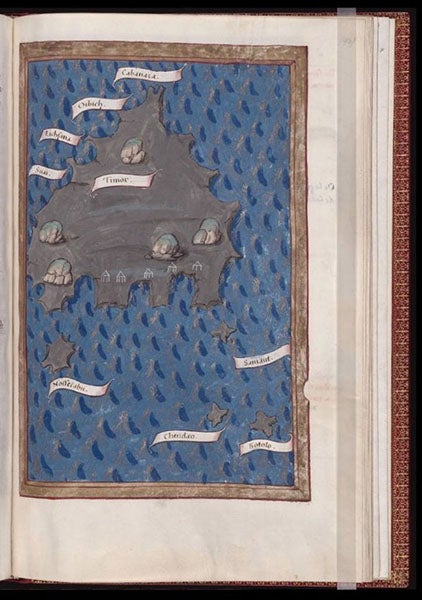 Cabanaza.
Oibich.
Lichsana
Suai.
Timor.
Samaut.
Nossesabu.
Chendan.
Sololo.